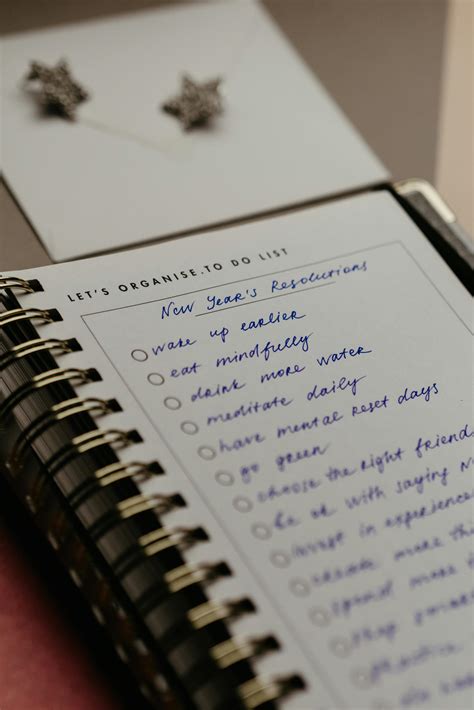 LET'S ORGANISE.TO DO LIST
New Year's Resolutions
wake up earlier
eat mindfully
drink more water
meditate daily
have mental reset days
go green
choose the right friend
Be ok with saying No
invest in experience
create more
spend more